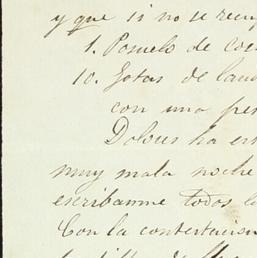 y que si no se recup
1. Posuelo de coc
10. Gotas de lau
con una pe
Dolores ha es
muy mala noche
escribanme todos l
Con la contestacion